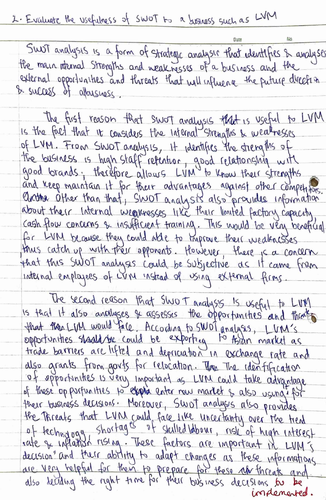 2. Evaluate the usefulness of SWOT to a business such as LVM
Date No.
SWOT analysis is a form of strategic analysis that identifies & analyses
the main internal strengths and weaknesses of a business and the
external opportunities and threats that will influence the future direction
& success of a business.
The first reason that SWOT analysis is useful to LVM
is the fact that it considers the internal strengths & weaknesses
of LVM. From SWOT analysis, it identifies the strengths of
the business is high staff retention, good relationship with
good brands, therefore allows LVM to know their strengths
and keep maintain it for their advantages against other
Other than that, SWOT analysis also provides information
about their internal weaknesses like their limited factory capacity,
cash flow concerns & insufficient training. This would be very beneficial
for LVM because they could able to improve their weaknesses
thus catch up with their opponents. However, there is a concern
that this SWOT analysis could be subjective as it came from
internal employees of LVM instead of using external firms.
The second reason that SWOT analysis is useful to LVM
is that it also analyses & assesses the opportunities and threats
that LVM would face. According to SWOT analysis, LVM's
opportunities could be exporting to Asian market as
trade barriers are lifted and in exchange rate and
also grants from govts for relocation. The identification
of opportunities is very important as LVM could take advantage
of these opportunities to enter new market & also using for
their business decision. Moreover, SWOT analysis also provides
the threats that LVM could face like uncertainty over the trend
of technology, shortage of skilled labour, risk of high interest
rate & inflation rising. These factors are important in LVM's
decision and their ability to adapt changes as these informations
are very helpful for them to prepare for these threats and
also deciding the right time for their business decisions to be
implemented.